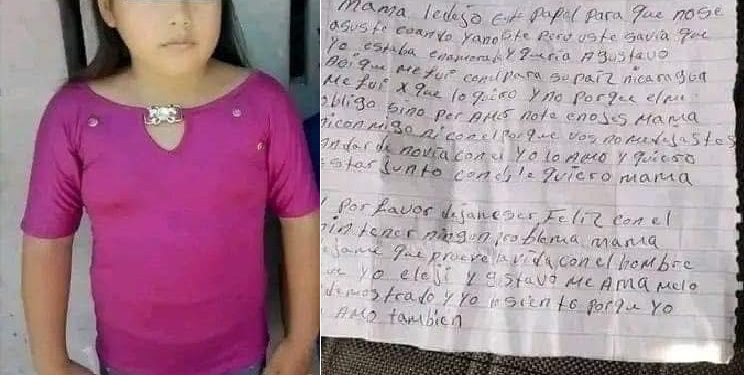 Mama ledejo este papel para que nose
asuste cuando yanoeste Pero uste savia que
Yo estaba enamorada y queria AGustavo
Asi que me fui con el para su paiz nicaragua
Me fui x que lo quiso y no porque el mi
obligo sino por AMO note enojes MaMa
niconmigo ni con el porque vos no me dejastes
andar de novia con el Yo lo AMO y quiero
estar junto con el le quiero mama
por favor dejame ser Feliz con el
sin tener ningun problema mama
dejame que prueve la vida con el hombre
que Yo eleji y gustavo Me AMa Melo
demostrado y Yo lo siento porque Yo
AMO tambien